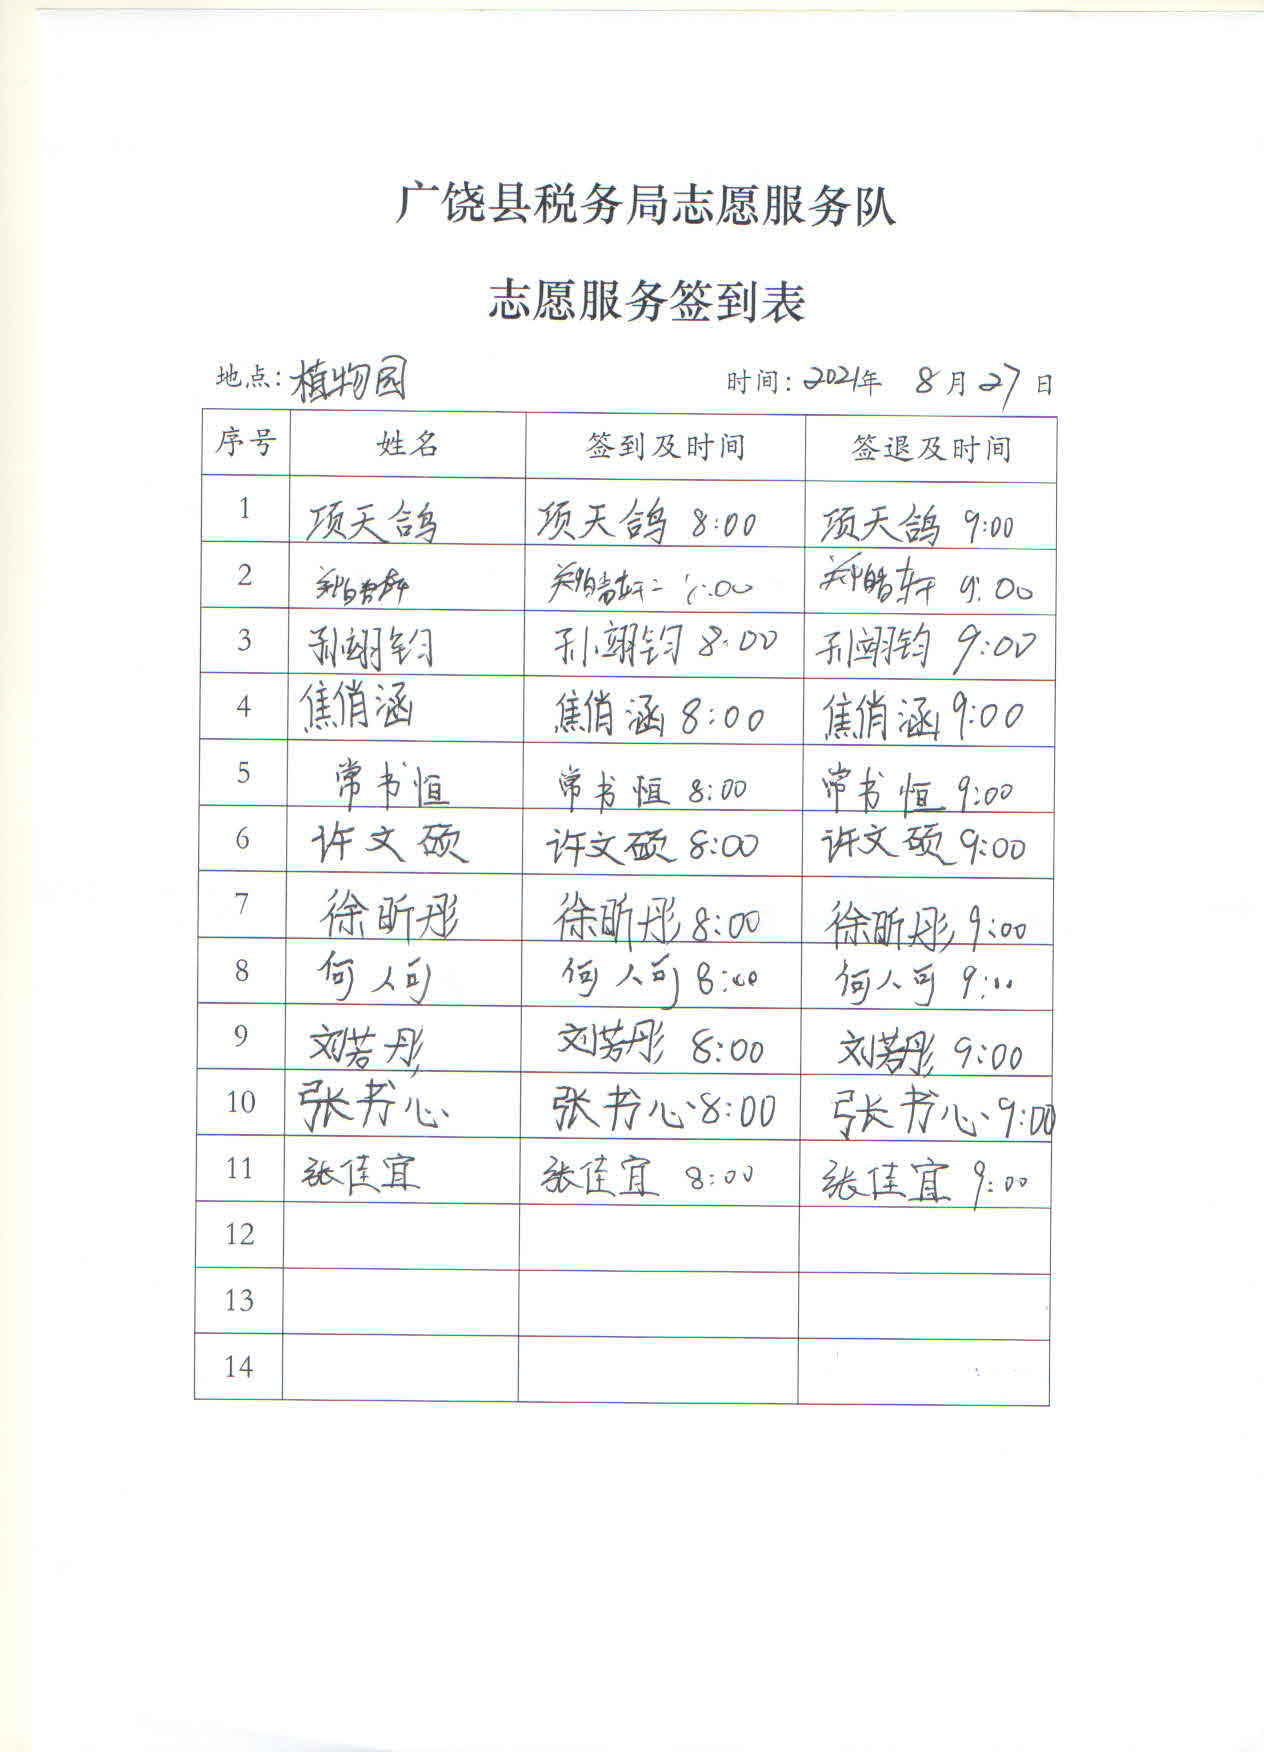 广饶县税务局志愿服务队
志愿服务签到表
地点：植物园 时间：2021年 8月27日
序号 姓名 签到及时间 签退及时间
1 项天鸽 项天鸽 8:00 项天鸽 9:00
2 郑皓轩 郑皓轩 :00 郑皓轩 9:00
3 孙翊钧 孙翊钧 8:00 孙翊钧 9:00
4 焦俏涵 焦俏涵 8:00 焦俏涵 9:00
5 常书恒 常书恒 8:00 常书恒 9:00
6 许文硕 许文硕 8:00 许文硕 9:00
7 徐昕彤 徐昕彤 8:00 徐昕彤 9:00
8 何人可 何人可 8:00 何人可 9:00
9 刘若彤 刘若彤 8:00 刘若彤 9:00
10 张书心 张书心 8:00 张书心 9:00
11 张佳宜 张佳宜 8:00 张佳宜 9:00
12
13
14